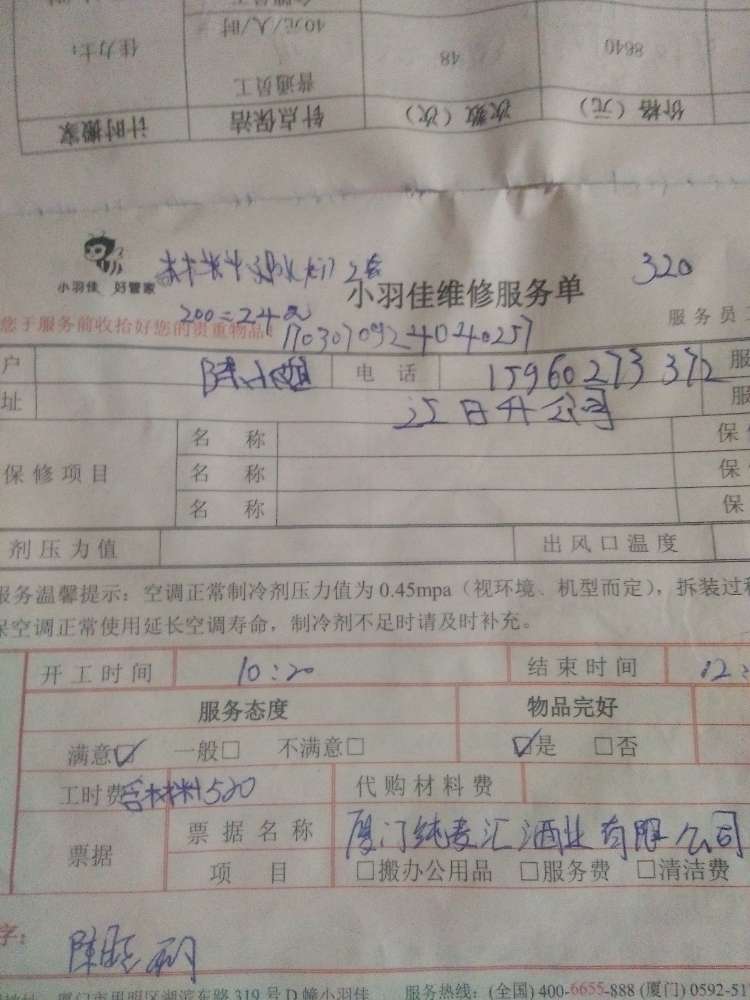 佳力士:
普通员工
10元/人/时
48
8640
计时搬家
针点保洁
次数（次）
价格（元）
小羽佳 好管家
320
小羽佳维修服务单
您于服务前收拾好您的贵重物品
1703070924040257
服务员
户 陈小姐 电话 15960273372 服
址 服
保修项目
名称 保
名称 保
名称 保
剂压力值 出风口温度
服务温馨提示：空调正常制冷剂压力值为0.45mpa（视环境、机型而定），拆装过
保空调正常使用延长空调寿命，制冷剂不足时请及时补充。
开工时间 10:20 结束时间 12:
服务态度 物品完好
满意☑ 一般□ 不满意□ ☑是 □否
工时费含材料520 代购材料费
票据 票据名称 厦门纯麦汇酒业有限公司
项目 □搬办公用品 □服务费 □清洁费
字:
厦门市思明区湖滨东路319号D幢小羽佳 服务热线：(全国) 400-6655-888 (厦门) 0592-51